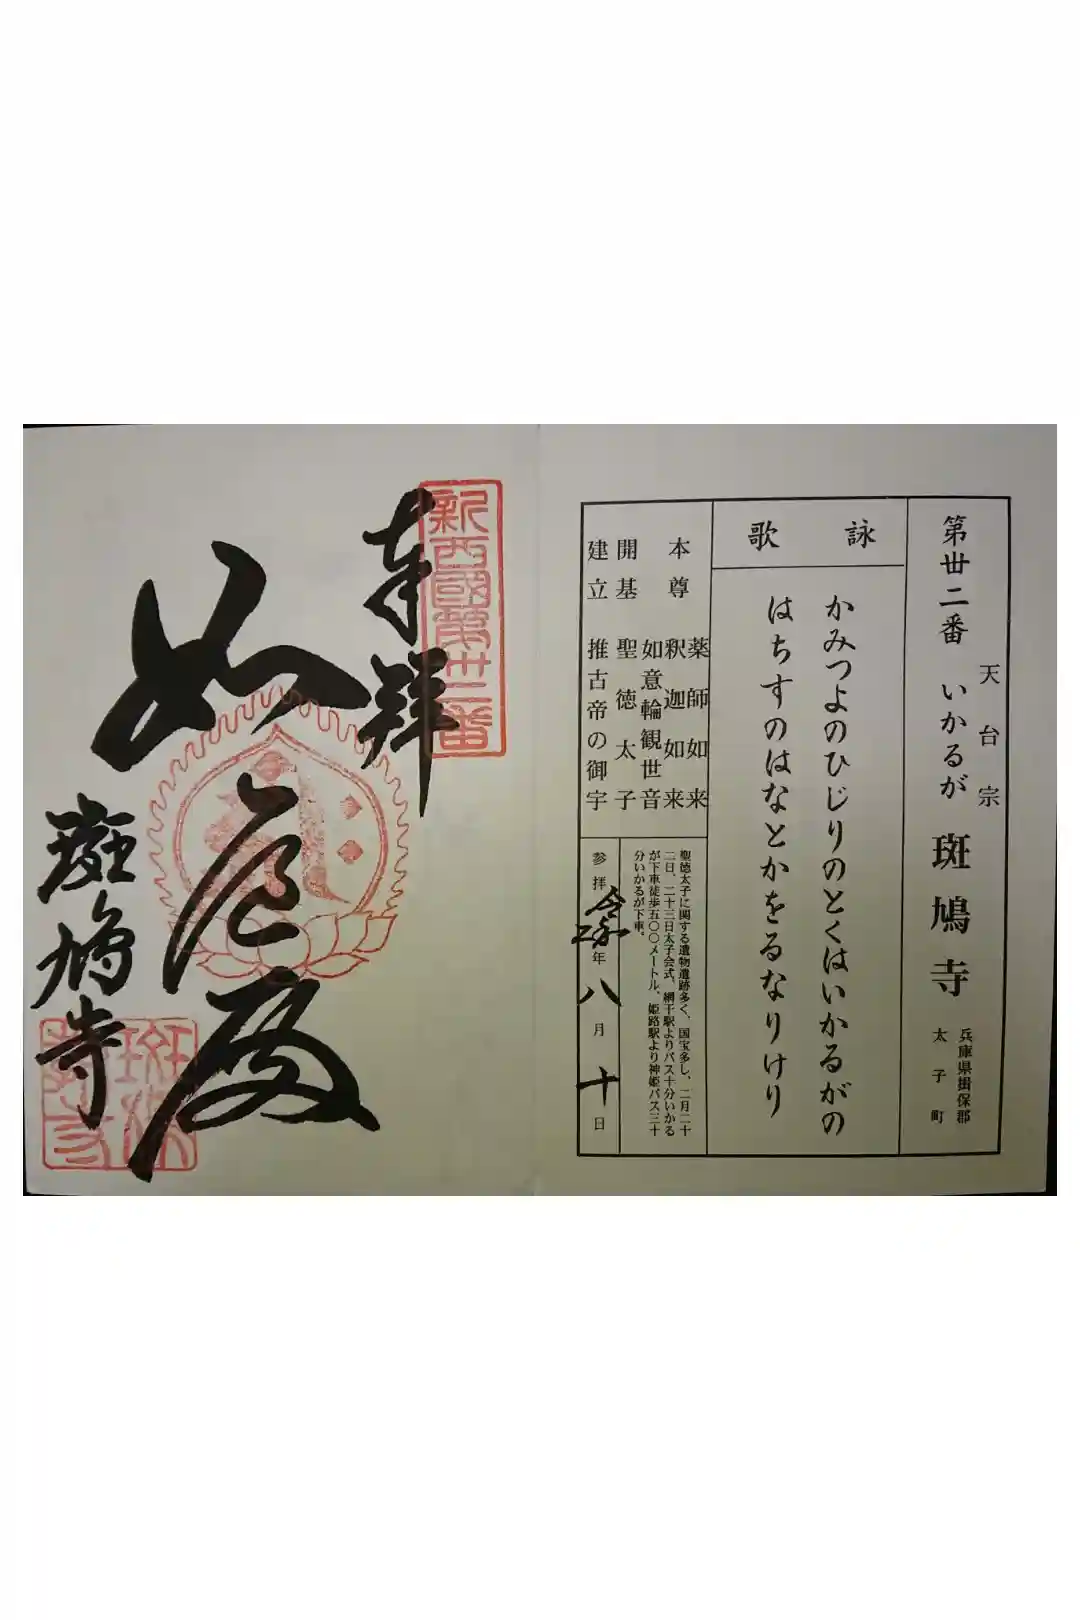 第丗二番 いかるが 斑鳩寺
天台宗
兵庫県揖保郡
太子町
詠歌
かみつよのひじりのとくはいかるがの
はちすのはなとかをるなりけり
本尊 薬師如来
釈迦如来
如意輪観世音
開基 聖徳太子
建立 推古帝の御宇
聖徳太子に関する遺物遺跡多く、国宝多し、二月二十
二日、二十三日太子会式、網干駅よりバス十分いかる
が下車徒歩五〇〇メートル、姫路駅より神姫バス三十
分いかるが下車。
参拝 令和 年 八月 十日
新西國第丗二番
奉拝
斑鳩寺